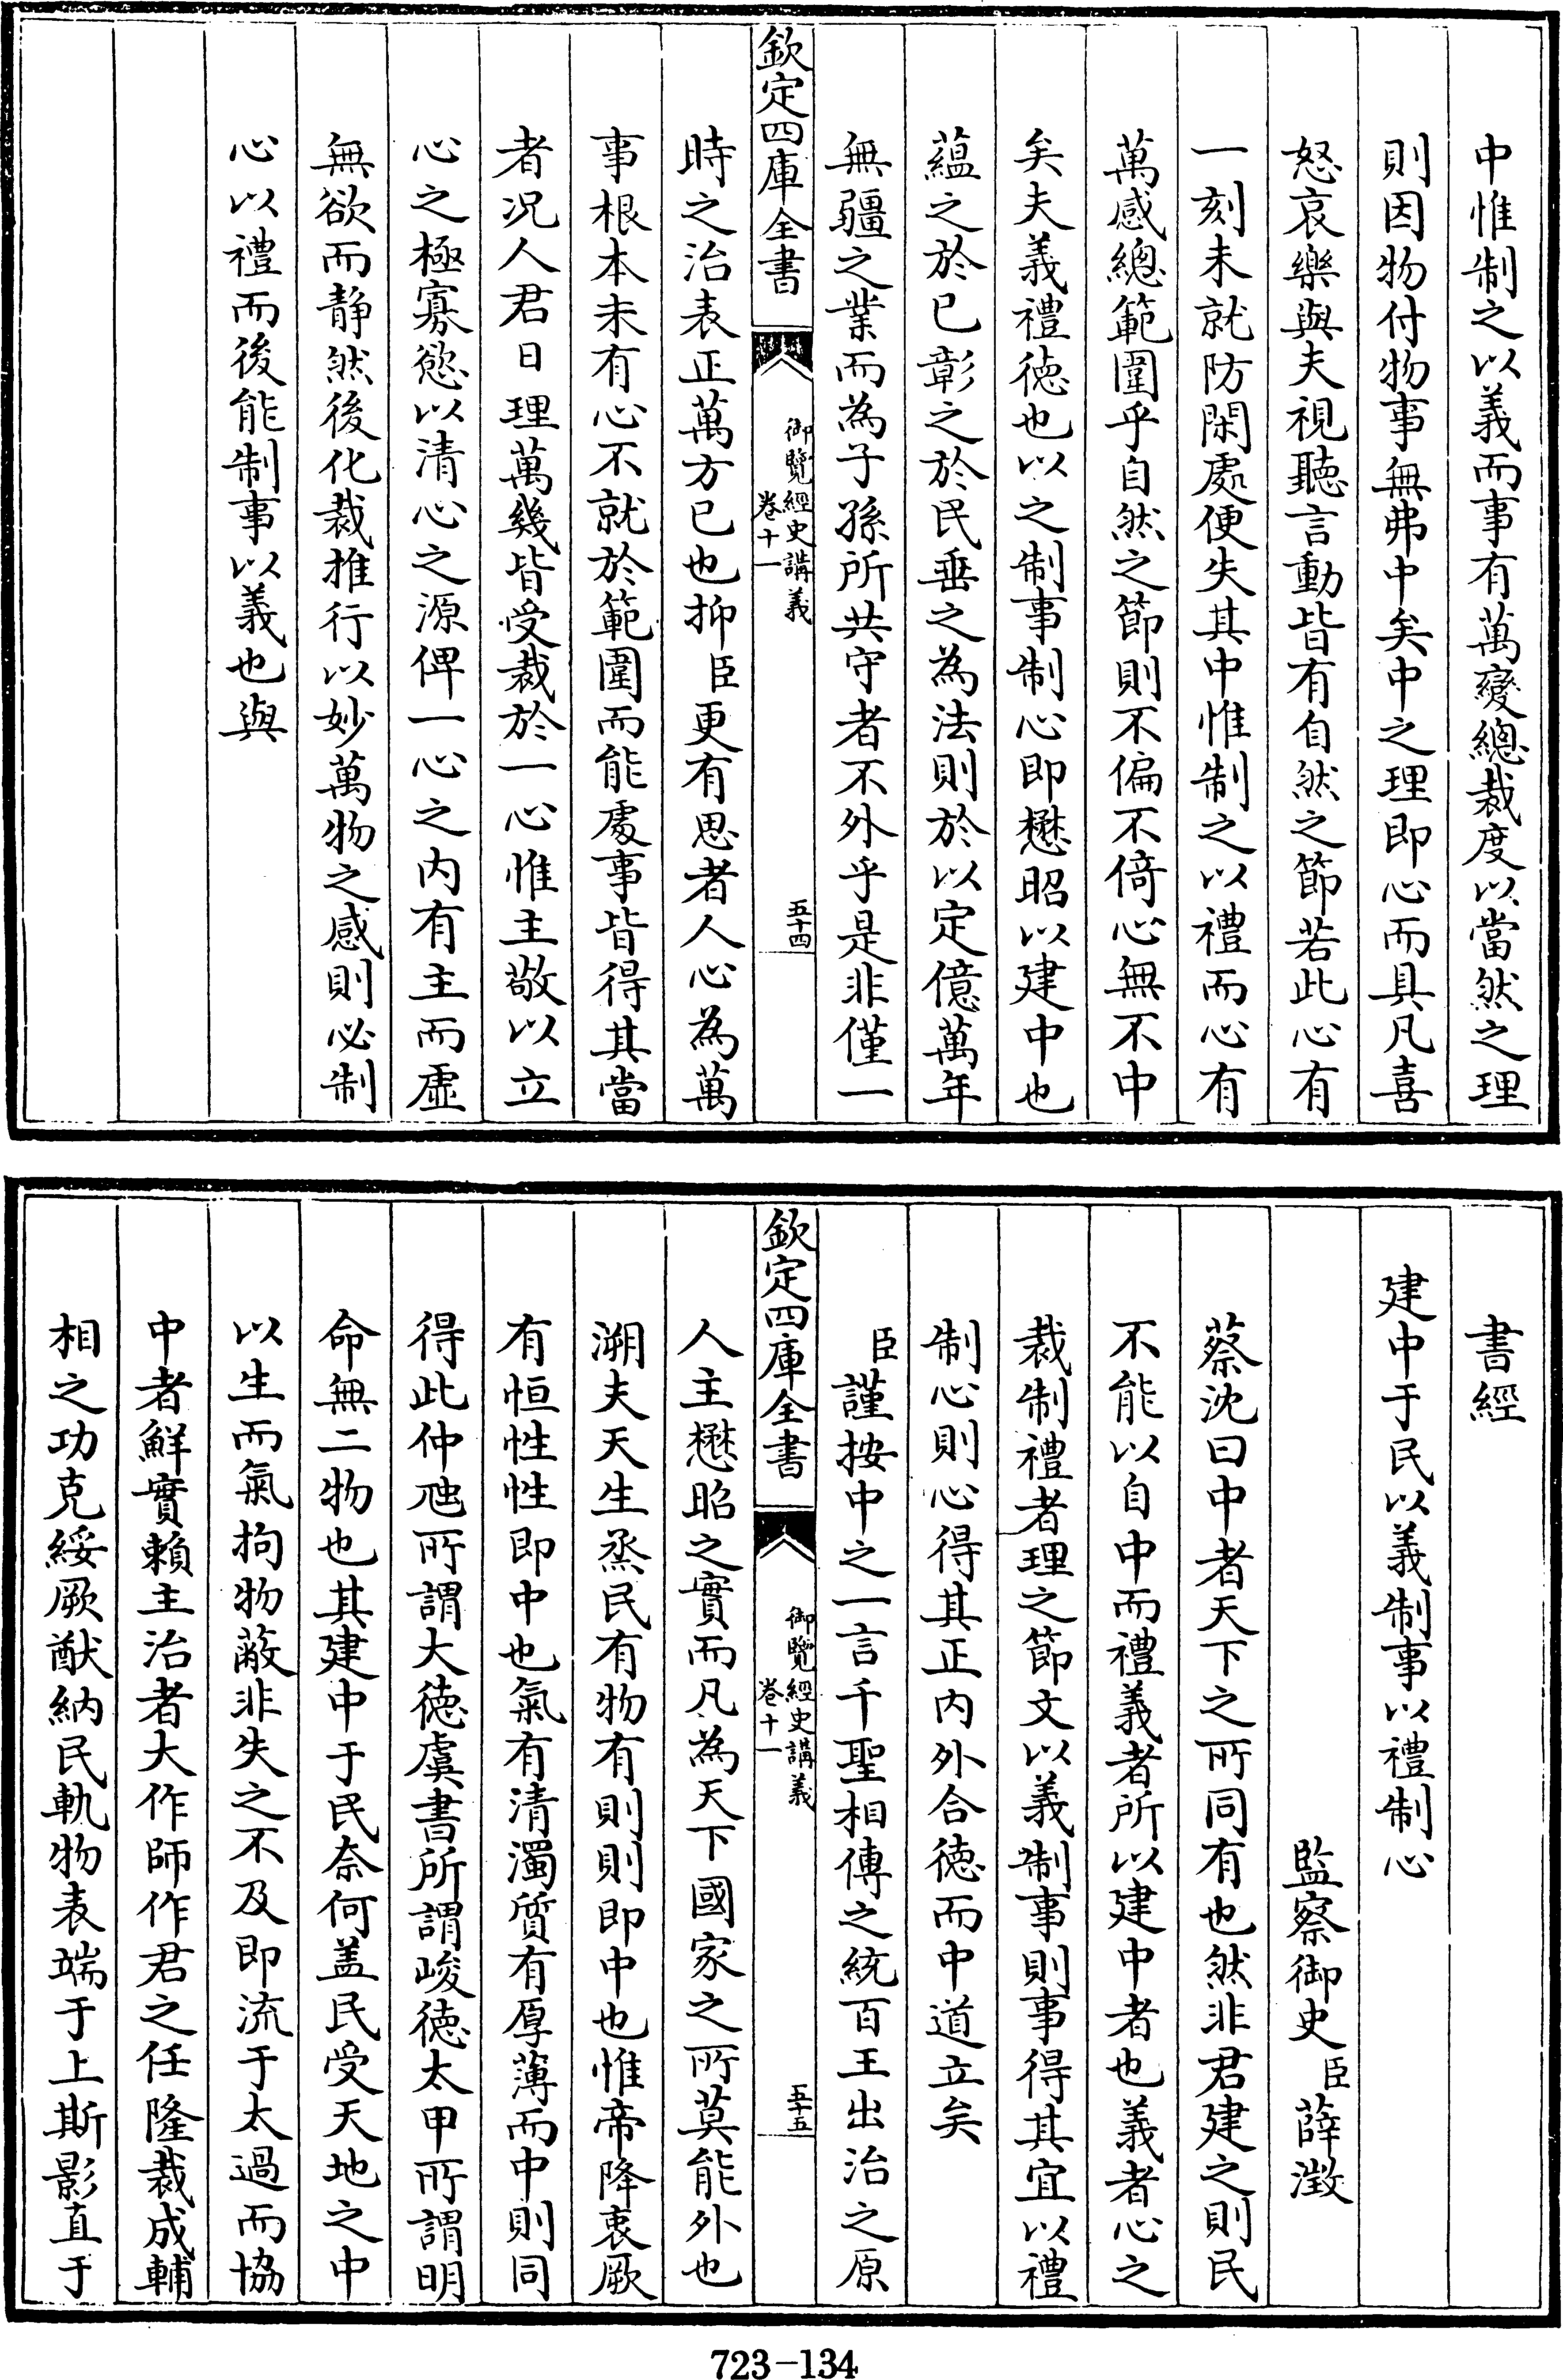 中惟制之以義而事有萬變總裁度以當然之理
則因物付物事無弗中矣中之理即心而具凡喜
怒哀樂與夫視聽言動皆有自然之節若此心有
一刻未就防閑處便失其中惟制之以禮而心有
萬感總範圍乎自然之節則不偏不倚心無不中
矣夫義禮徳也以之制事制心即懋昭以建中也
蘊之於已彰之於民垂之為法則於以定億萬年
無疆之業而為子孫所共守者不外乎是非僅一
欽定四庫全書
御覽經史講義
卷十一
五十四
時之治表正萬方已也抑臣更有思者人心為萬
事根本未有心不就於範圍而能處事皆得其當
者况人君日理萬幾皆受裁於一心惟主敬以立
心之極寡慾以清心之源俾一心之内有主而虛
無欲而静然後化裁推行以妙萬物之感則必制
心以禮而後能制事以義也與
書經
建中于民以義制事以禮制心
監察御史臣薛澂
蔡沈曰中者天下之所同有也然非君建之則民
不能以自中而禮義者所以建中者也義者心之
裁制禮者理之節文以義制事則事得其宜以禮
制心則心得其正内外合徳而中道立矣
臣謹按中之一言千聖相傳之統百王出治之原
欽定四庫全書
御覽經史講義
卷十一
五十五
人主懋昭之實而凡為天下國家之所莫能外也
溯夫天生烝民有物有則則即中也惟帝降衷厥
有恒性性即中也氣有清濁質有厚薄而中則同
得此仲虺所謂大徳虞書所謂峻徳太甲所謂明
命無二物也其建中于民奈何盖民受天地之中
以生而氣拘物蔽非失之不及即流于太過而協
中者鮮實賴主治者大作師作君之任隆裁成輔
相之功克綏厥猷納民軌物表端于上斯影直于
723-134